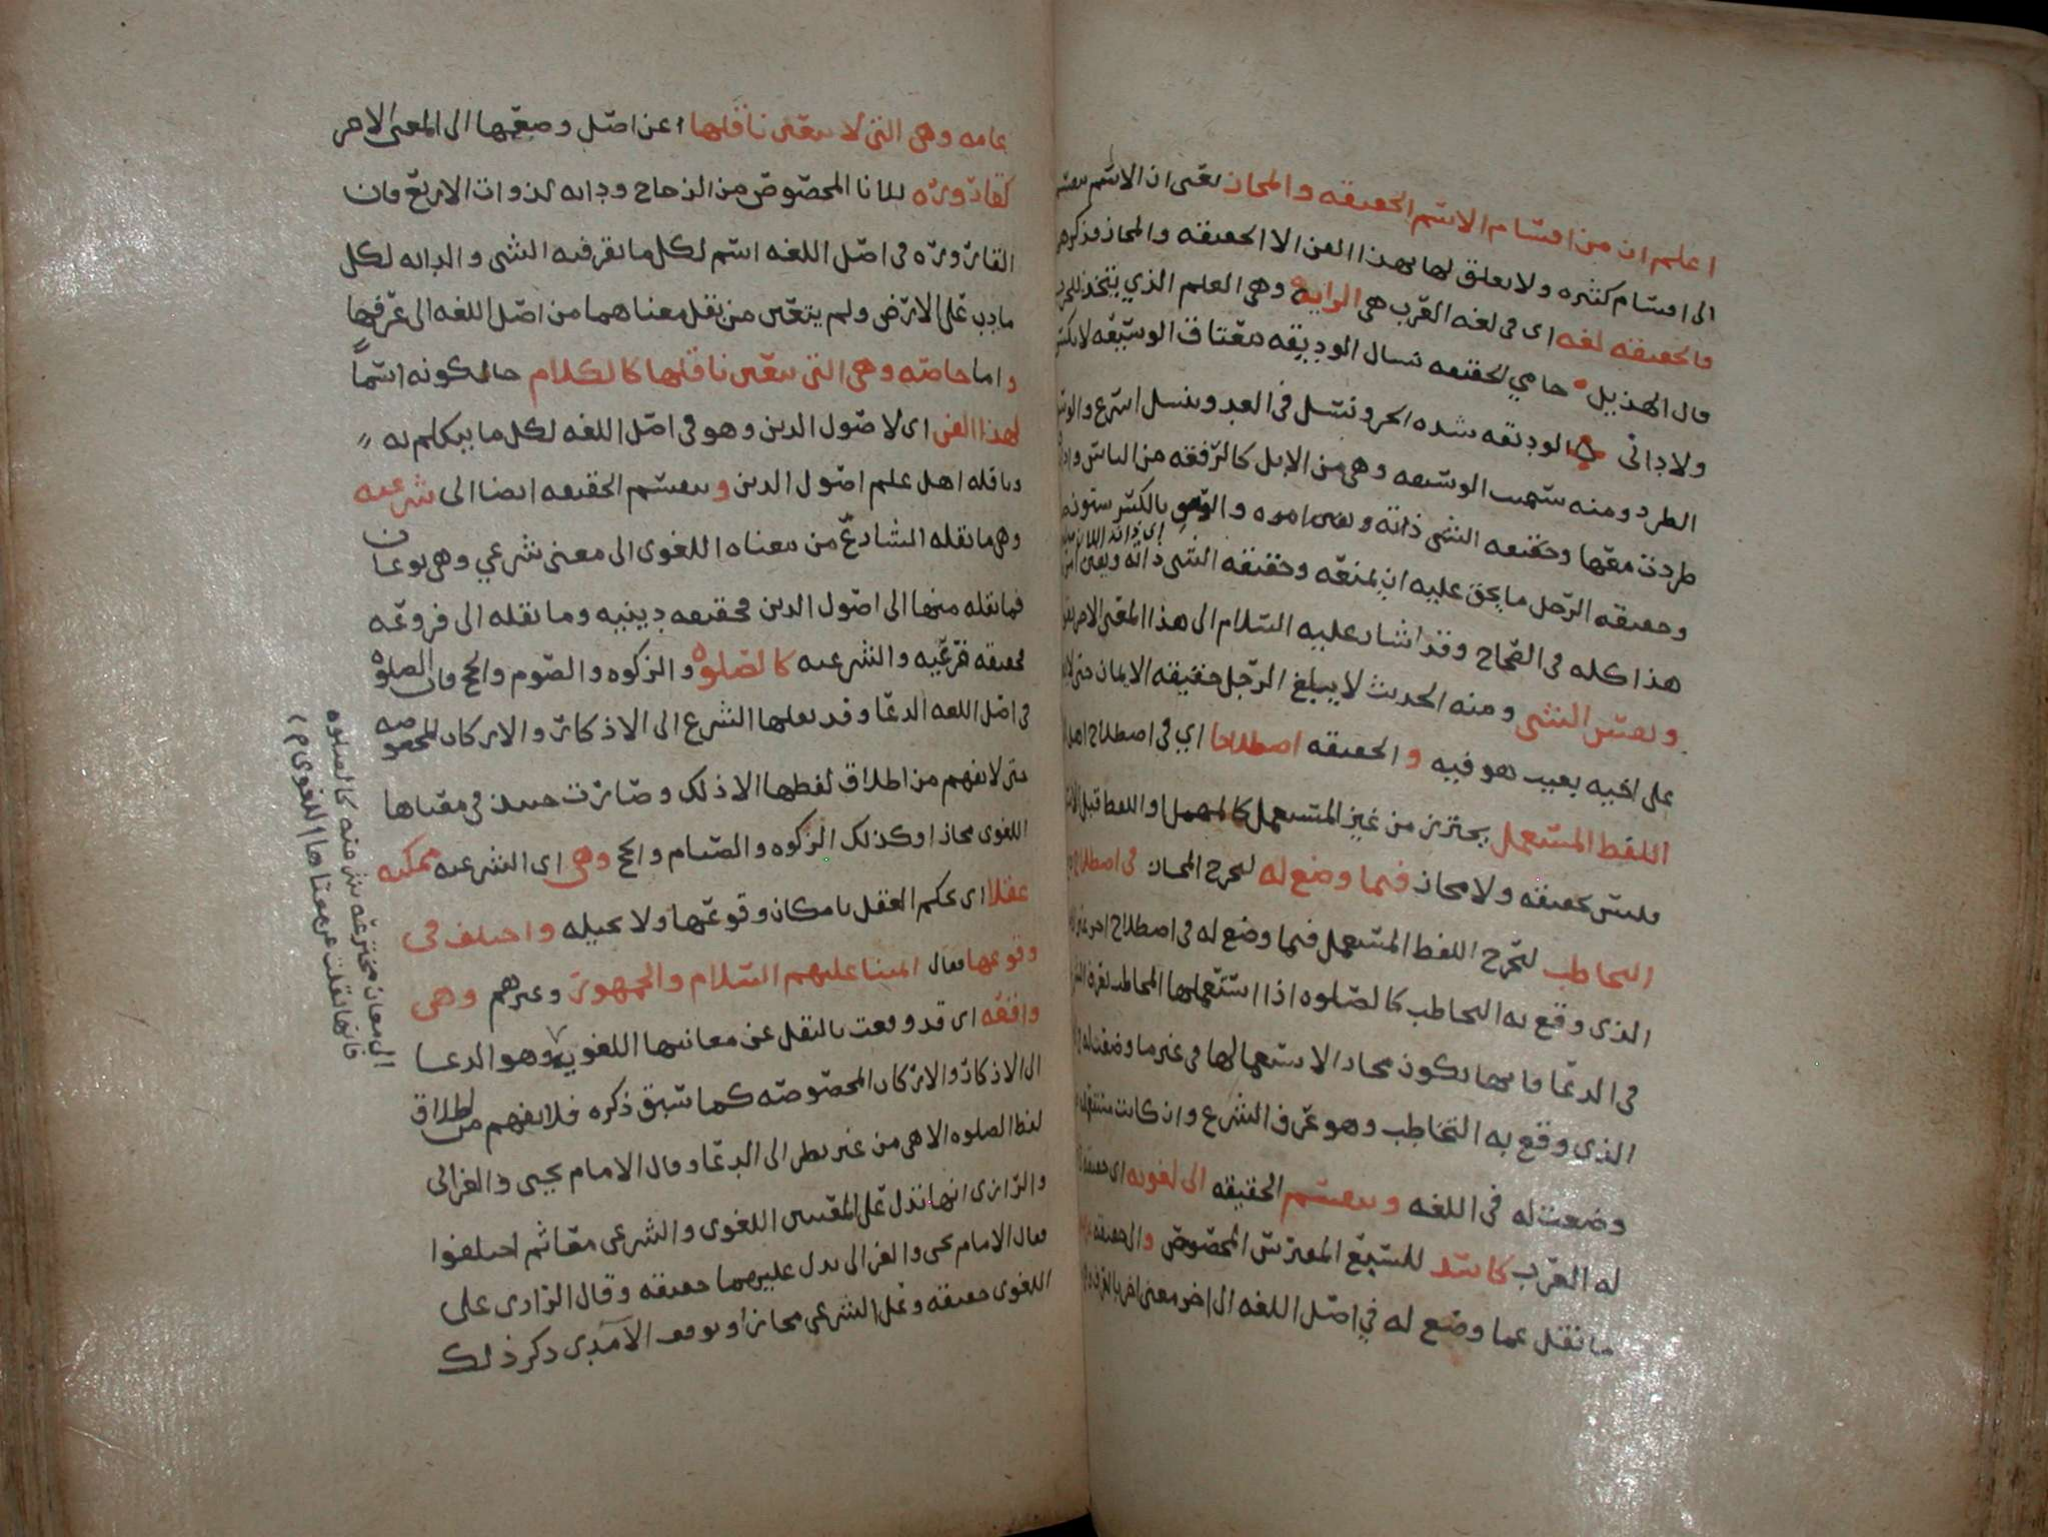 اعلم ان من اقسام الاسم الحقيقه والمجاز يعنى ان الاسم
الى اقسام كثيره ولا يعلق لها بهذا الفن الا الحقيقه والمجاز
فالحقيقه لغه اى فى لغه العرب هى الرايه وهى العلم الذي يتخذ للحرب
قال الهذيل حامي الحقيقه نسال الوديقه معتاق الوسيقه
ولا دانى الوديقه شده الحر ونسل فى العد وينسل اسرع
الطرد ومنه سميت الوسيقه وهى من الابل كالرفقه من الناس
طردت معها وحقيقه الشى ذاته
وحقيقه الرجل ما يحق عليه ان يمنعه وحقيقه الشى ذاته
هذا كله فى الصحاح وقد اشار عليه السلام الى هذا المعنى الاخر
ونفس الشى ومنه الحديث لا يبلغ الرجل حقيقه الايمان حتى
على اخيه بعيب هو فيه والحقيقه اصطلاحا اي فى اصطلاح
اللفظ المستعمل يحترز من غير المستعمل كالمهمل او اللفظ قبل
فليس بحقيقه ولا مجاز فيما وضع له ليخرج المجاز فى اصطلاح
التخاطب ليخرج اللفظ المستعمل فيما وضع له فى اصطلاح اخر
الذى وقع به التخاطب كالصلوه اذا استعملها المخاطب
فى الدعا فانها تكون مجازا لاستعمالها فى غير ما وضعت له
الذى وقع به التخاطب وهو عرف الشرع وان كانت
وضعت له فى اللغه وينقسم الحقيقه الى لغويه
له العرب كاسد للسبع المفترس المخصوص
ما نقل عما وضع له في اصل اللغه الى اخر
عامه وهى التى لا يتعين ناقلها عن اصل وضعها الى المعنى الاخر
كقاروره للانا المخصوص من الزجاج ودابه لذوات الاربع فان
القاروره فى اصل اللغه اسم لكل ما يقر فيه الشى والدابه لكل
ما دب على الارض ولم يتعين من نقل معناهما من اصل اللغه الى عرفها
واما خاصه وهى التى يتعين ناقلها كالكلام حال كونه اسماً
لهذا الفن اى لاصول الدين وهو فى اصل اللغه لكل ما يتكلم به
وناقله اهل علم اصول الدين وينقسم الحقيقه ايضا الى شرعيه
وهى ما نقله الشارع من معناه اللغوى الى معنى شرعي وهى نوعان
فما نقله منها الى اصول الدين فحقيقه دينيه وما نقله الى فروعه
فحقيقه فرعيه والشرعيه كالصلوه والزكوه والصوم والحج فان الصلوه
فى اصل اللغه الدعا وقد نقلها الشرع الى الاذكار والاركان المخصوصه
حتى لا يفهم من اطلاق لفظها الا ذلك وصارت حينئذ فى معناها
اللغوى مجازا وكذلك الزكوه والصيام والحج وهى اى الشرعيه ممكنه
عقلا اى يحكم العقل بامكان وقوعها ولا يحيله واختلف فى
وقوعها فقال ائمتنا عليهم السلام والجمهور وغيرهم وهى
واقعه اى قد وقعت بالنقل عن معانيها اللغويه وهو الدعا
الى الاذكار والاركان المخصوصه كما سبق ذكره فلا يفهم من اطلاق
لفظ الصلوه الا هى من غير نظر الى الدعا وقال الامام يحيى والغزالى
والرازى انها تدل على المعنيين اللغوى والشرعى معا ثم اختلفوا
فقال الامام يحى والغزالى يدل عليهما حقيقه وقال الرازى على
اللغوى حقيقه وعلى الشرعى مجازا وتوقف الآمدى ذكر ذلك
الى معان مخترعه شرعيه كالصلوه
فانها نقلت عن معناها اللغوى